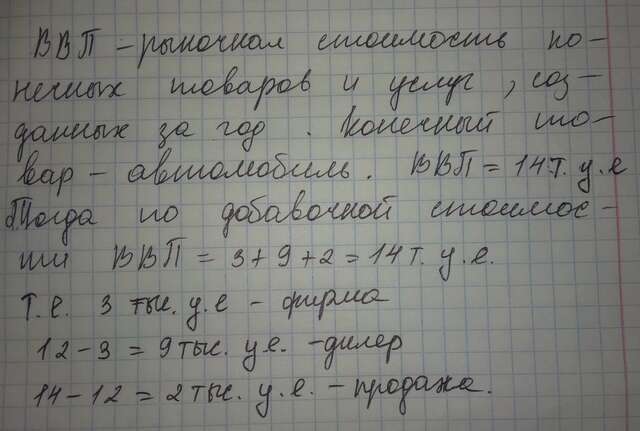 ВВП – рыночная стоимость ко-
нечных товаров и услуг, соз-
данных за год. Конечный то-
вар – автомобиль. ВВП = 14 т. у.е
Тогда по добавочной стоимос-
ти ВВП = 3 + 9 + 2 = 14 т. у.е.
Т.е. 3 тыс. у.е – фирма
12 – 3 = 9 тыс. у.е. – дилер
14 – 12 = 2 тыс. у.е. – продажа.